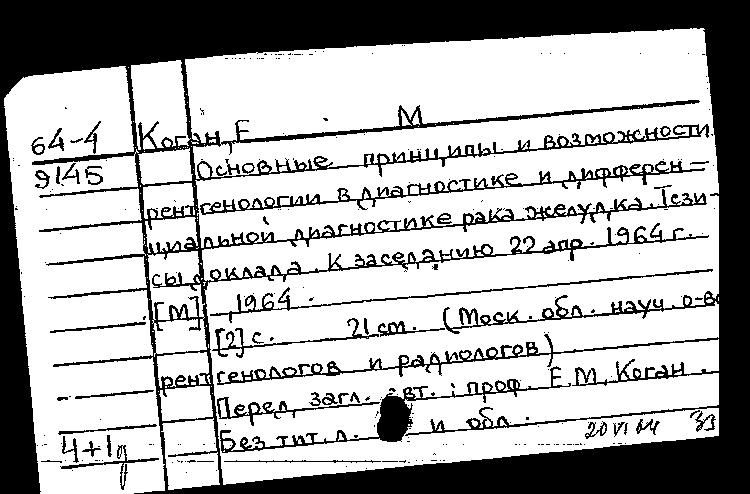 64-4 Коган, Е М
9145 Основные принципы и возможности
рентгенологии в диагностике и дифферен=
циальной диагностике рака желудка. Тези-
сы доклада. К заседанию 22 апр. 1964 г.
[М] , 1964.
[2] с. 21 см. (Моск. обл. науч. о-во
рентгенологов и радиологов)
Перед загл. авт.: проф. Е.М. Коган.
Без тит. л. и обл.
4+1д 20 VI 64 33